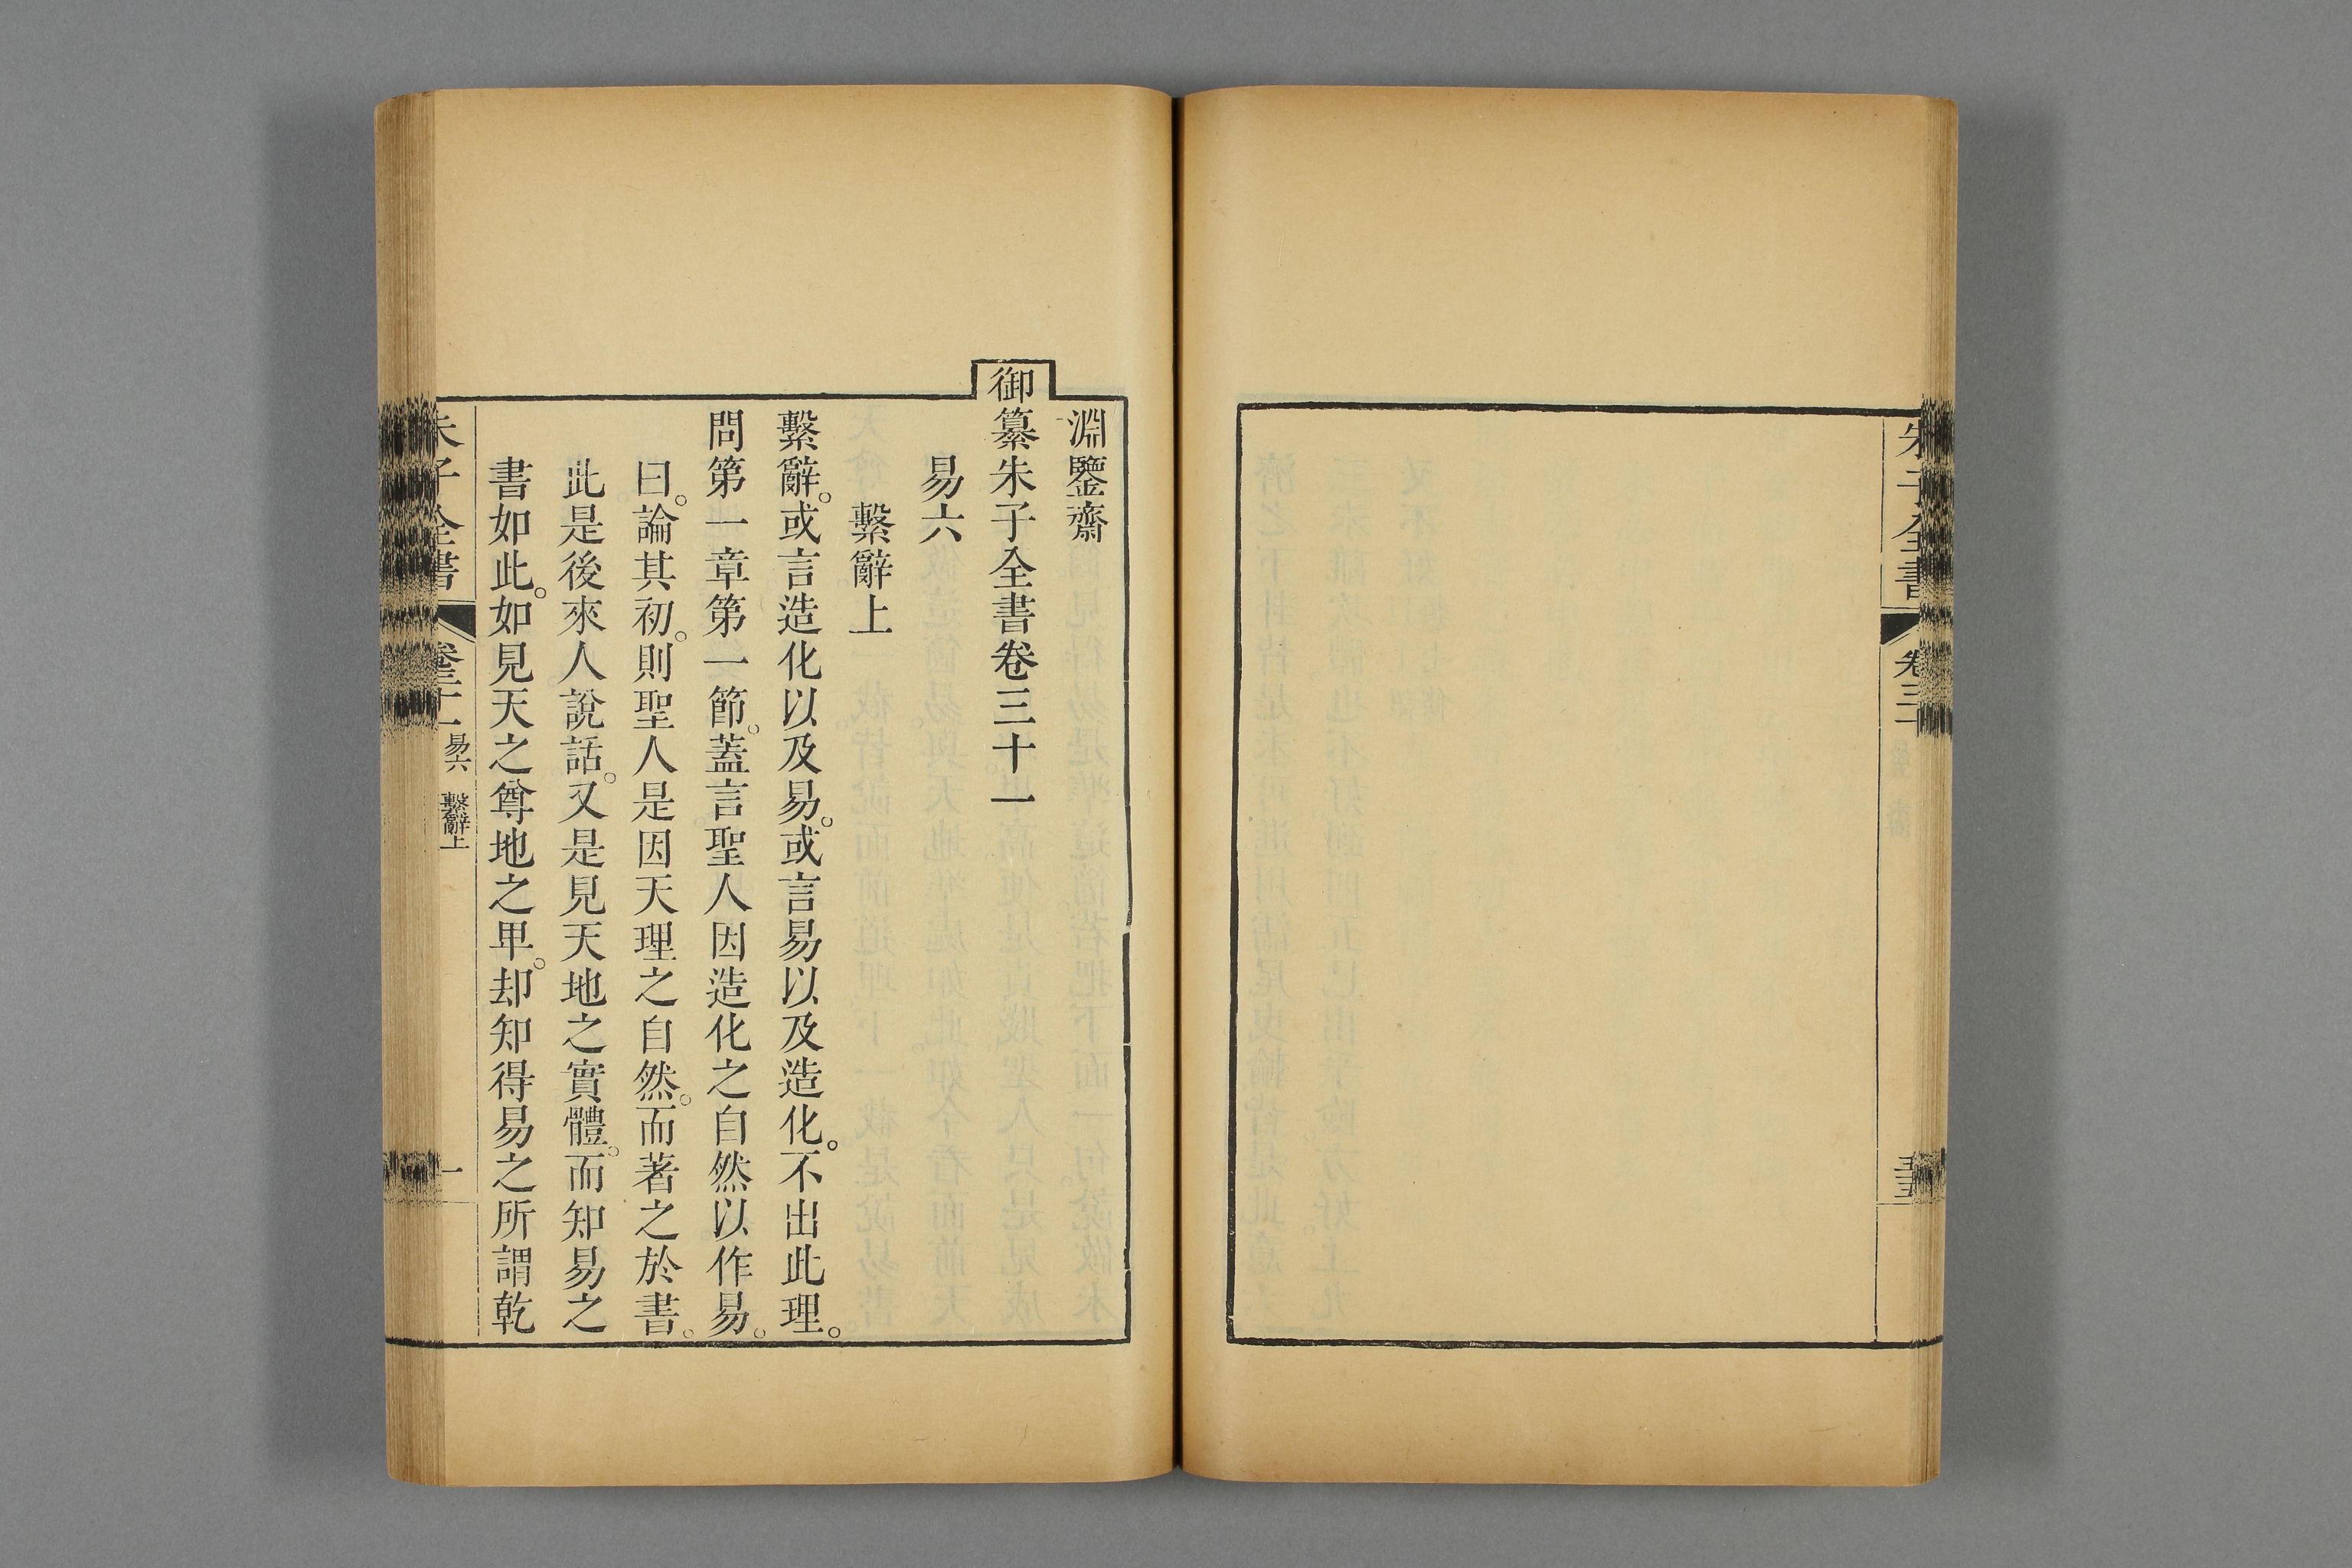 朱子全書 卷三十
淵鑒齋
御纂朱子全書卷三十一
易六
繫辭上
繫辭。或言造化以及易。或言易以及造化。不出此理。
問第一章第一節。蓋言聖人因造化之自然以作易。
曰。論其初。則聖人是因天理之自然。而著之於書。
此是後來人說話。又是見天地之實體。而知易之
書如此。如見天之尊地之卑。却知得易之所謂乾
朱子全書 卷三十一 易六 繫辭上 一